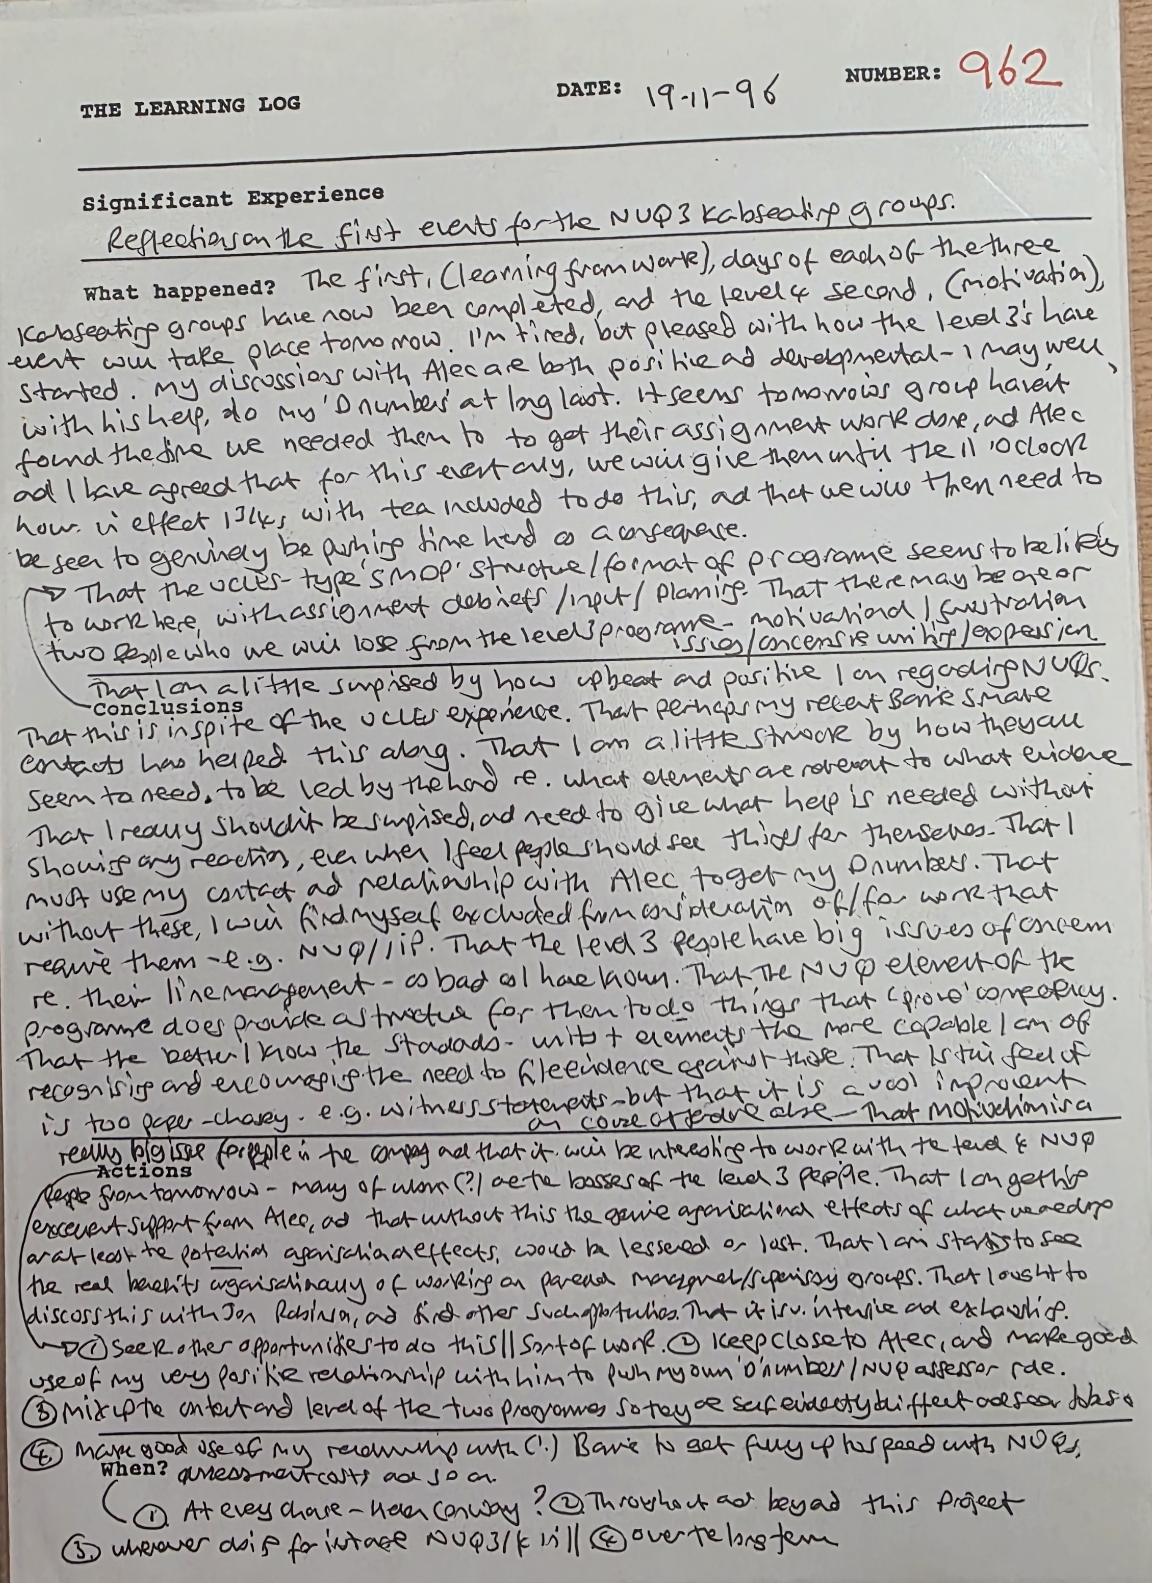 THE LEARNING LOG
DATE: 19-11-96
NUMBER: 962
Significant Experience
Reflections on the first events for the NVQ3 groups.
What happened? The first, (learning from work), days of each of the three
groups have now been completed, and the level 4 second, (motivation),
event will take place tomorrow. I'm tired, but pleased with how the level 3's have
started. My discussions with Alec are both positive and developmental - I may well,
with his help, do my 'D numbers' at long last. It seems tomorrow's group haven't
found the time we needed them to to get their assignment work done, and Alec
and I have agreed that for this event only, we will give them until the 11 o'clock
hour. in effect 1 3/4 hrs, with tea included to do this, and that we will then need to
be seen to genuinely be pushing time hard as a consequence.
→ That the UCLES-type 'SMDP' structure/format of programme seems to be likely
to work here, with assignment debriefs/input/planning. That there may be one or
two people who we will lose from the level 3 programme - motivational/frustration
issues/concensive writing/expression
That I am a little surprised by how upbeat and positive I am regarding NVQs.
Conclusions
That this is inspite of the UCLES experience. That perhaps my recent Barrie Smale
contacts has helped this along. That I am a little struck by how they all
seem to need to be led by the hand re. what elements are relevant to what evidence
That I really shouldn't be surprised, and need to give what help is needed without
showing any reaction, even when I feel people should see things for themselves. That I
must use my contact and relationship with Alec, to get my D numbers. That
without these, I will find myself excluded from consideration of/for work that
require them - e.g. NVQ/IIP. That the level 3 people have big issues of concern
re. their line management - as bad as I have known. That the NVQ element of the
programme does provide a structure for them to do things that 'prove' competency.
That the better I know the standards - units + elements the more capable I am of
recognising and encouraging the need to file evidence against those. That I still feel it
is too paper-chasey. e.g. witness statements - but that it is a vast improvement
on course attendance alone - That motivation is a
really big issue for people in the company and that it will be interesting to work with the level 4 NVQ
Actions
people from tomorrow - many of whom (?) are the bosses of the level 3 people. That I am getting
excellent support from Alec, and that without this the genuine organisational effects of what we are doing
or at least the potential organisational effects, would be lessened or lost. That I am starting to see
the real benefits organisationally of working on parallel management/supervisory groups. That I ought to
discuss this with Jon Robinson, and find other such opportunities. That it is v. intensive and exhausting.
→ ① Seek other opportunities to do this // sort of work. ② Keep close to Alec, and make good
use of my very positive relationship with him to push my own 'D' numbers/NVQ assessor role.
③ Mix up the content and level of the two programmes so they are self evidently different
④ Make good use of my relationship with (!) Barrie to get fully up to speed with NVQs,
When? assessment costs and so on.
① At every chance - Conway? ② Throughout and beyond this project
③ wherever doing NVQ3/4 // ④ over the long term